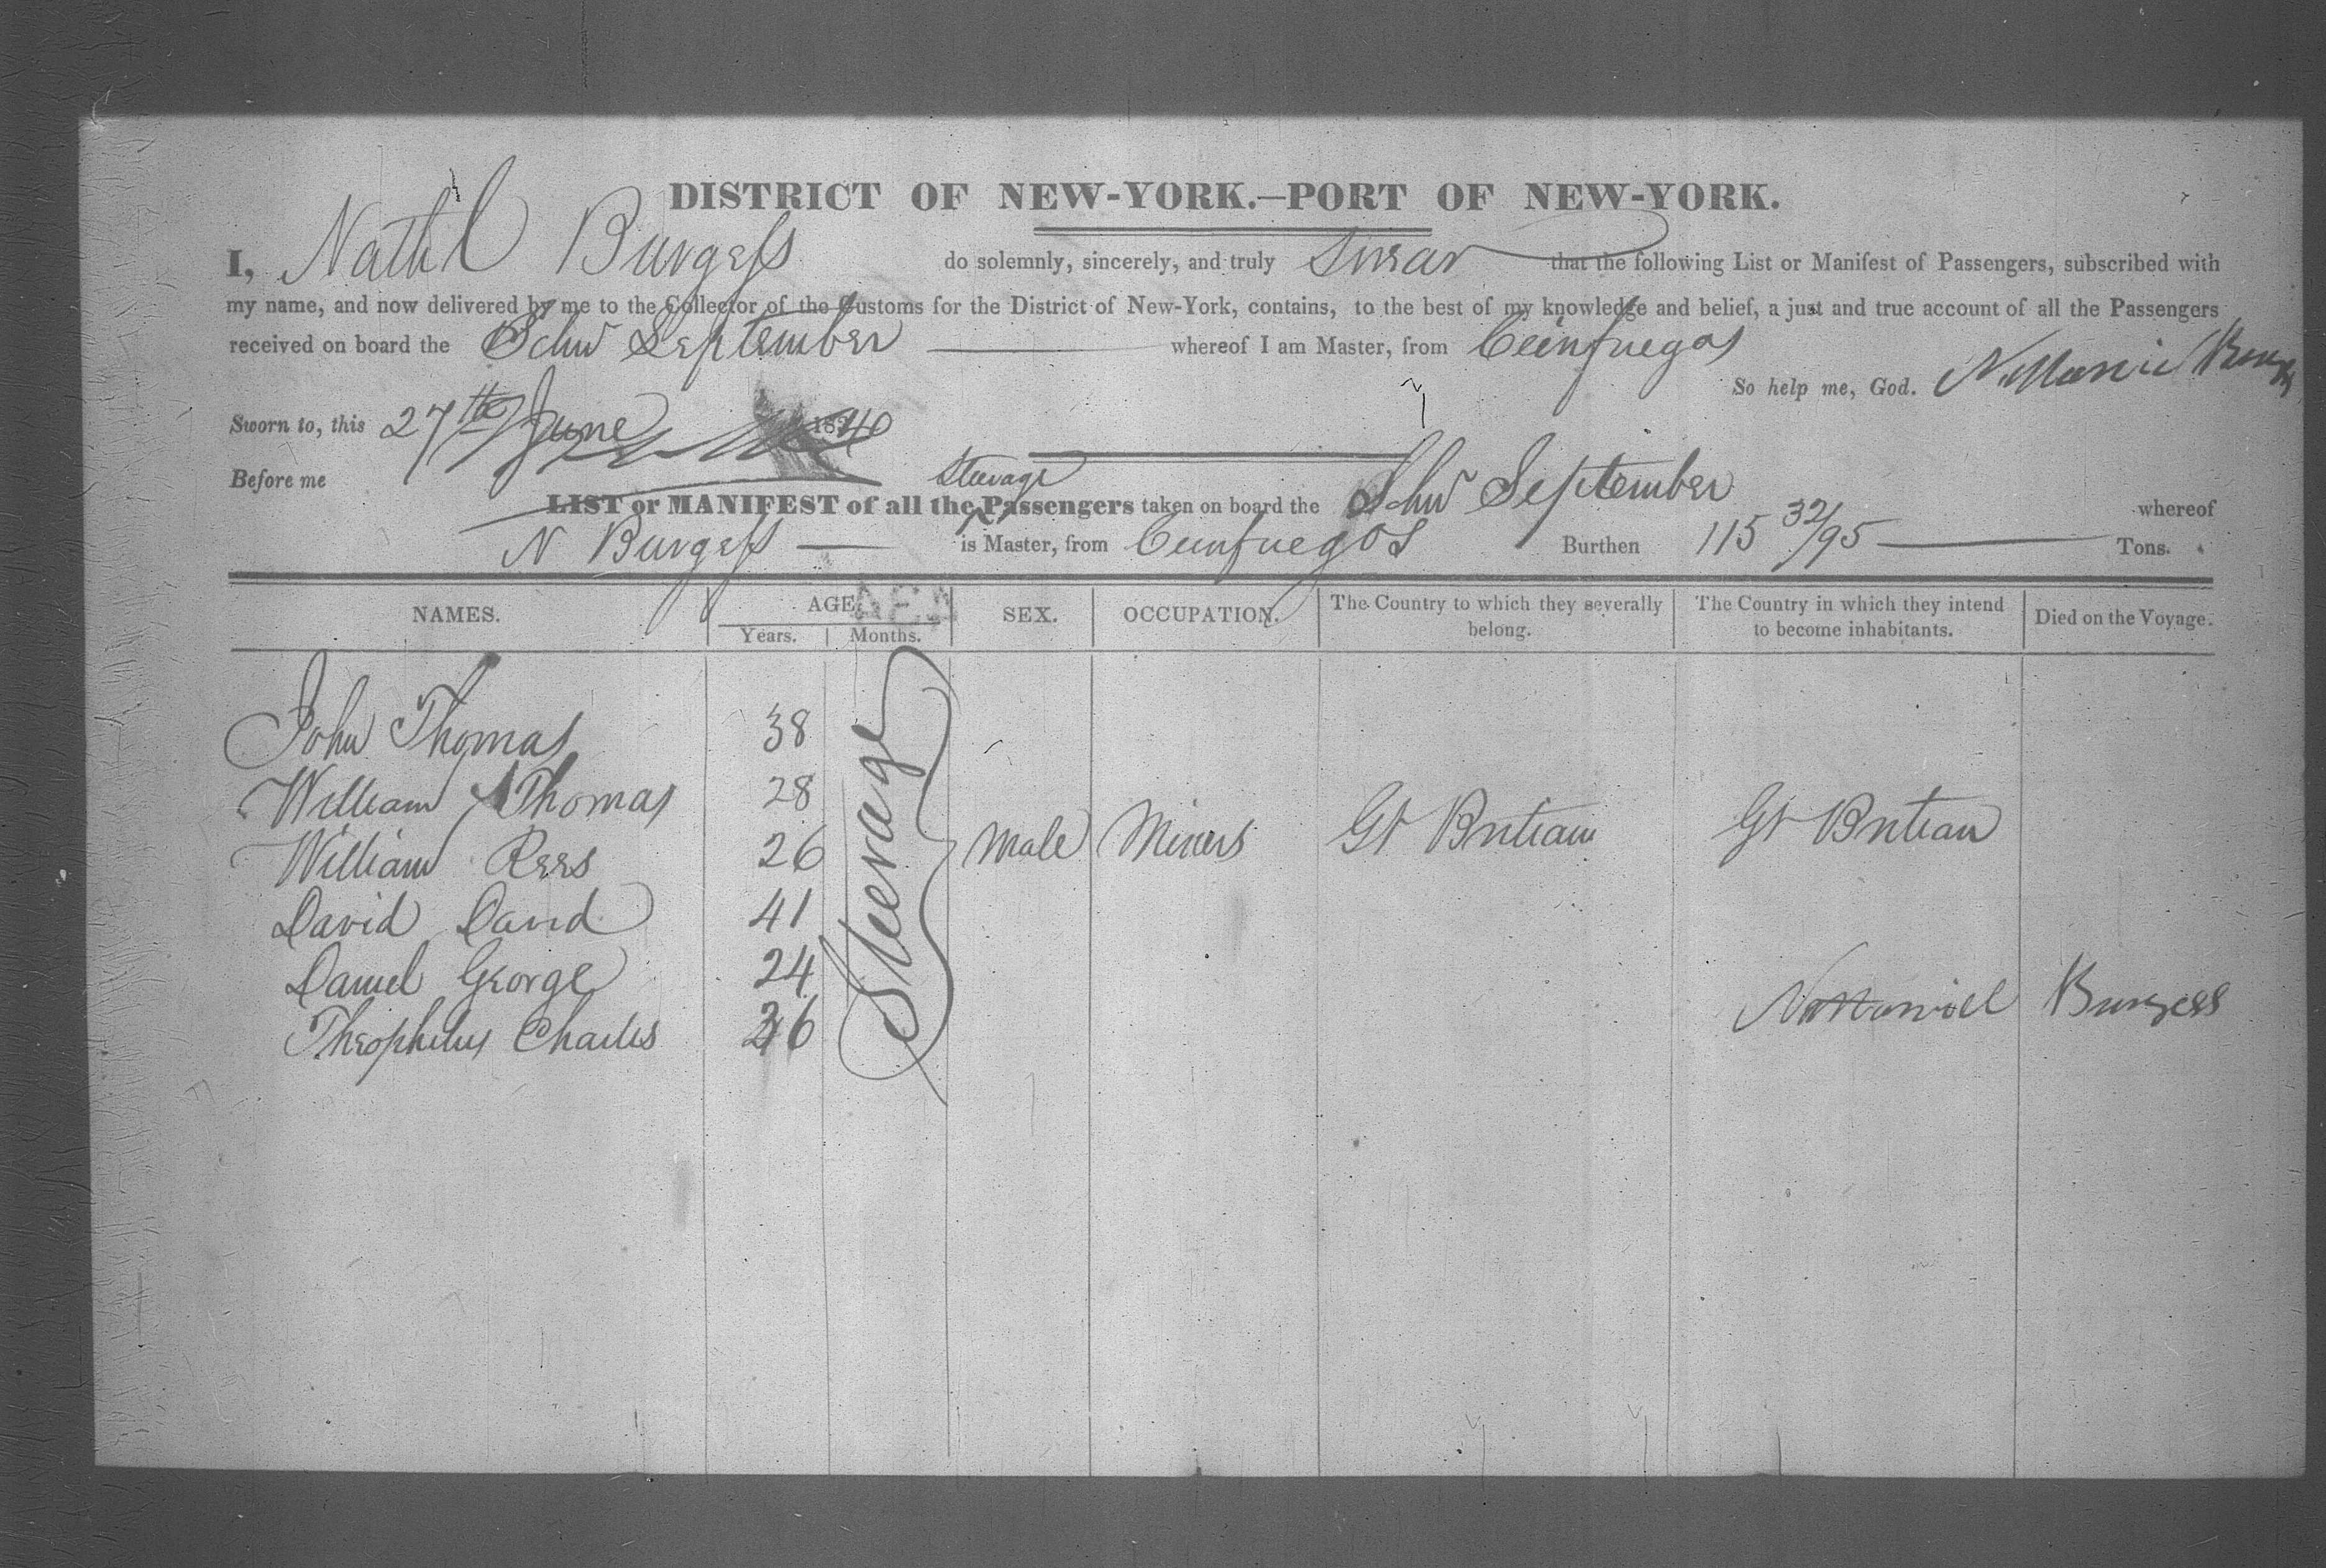 DISTRICT OF NEW-YORK.—PORT OF NEW-YORK.
I, Nathl Burgess do solemnly, sincerely, and truly swear that the following List or Manifest of Passengers, subscribed with
my name, and now delivered by me to the Collector of the Customs for the District of New-York, contains, to the best of my knowledge and belief, a just and true account of all the Passengers
received on board the Schr September whereof I am Master, from Ceinfuegos
So help me, God. Nathaniel Burgess
Sworn to, this 27th June 1840
Before me
Steerage
LIST or MANIFEST of all the Passengers taken on board the Schr September whereof
N Burgess is Master, from Ceinfuegos Burthen 115 32/95 Tons.
NAMES. AGE. SEX. OCCUPATION. The Country to which they severally belong. The Country in which they intend to become inhabitants. Died on the Voyage.
Years. Months.
John Thomas 38
William Thomas 28
William Rees 26 Steerage Male Miners Gt Britian Gt Britian
David David 41
Daniel George 24
Theophilus Charles 26
Nathaniel Burgess